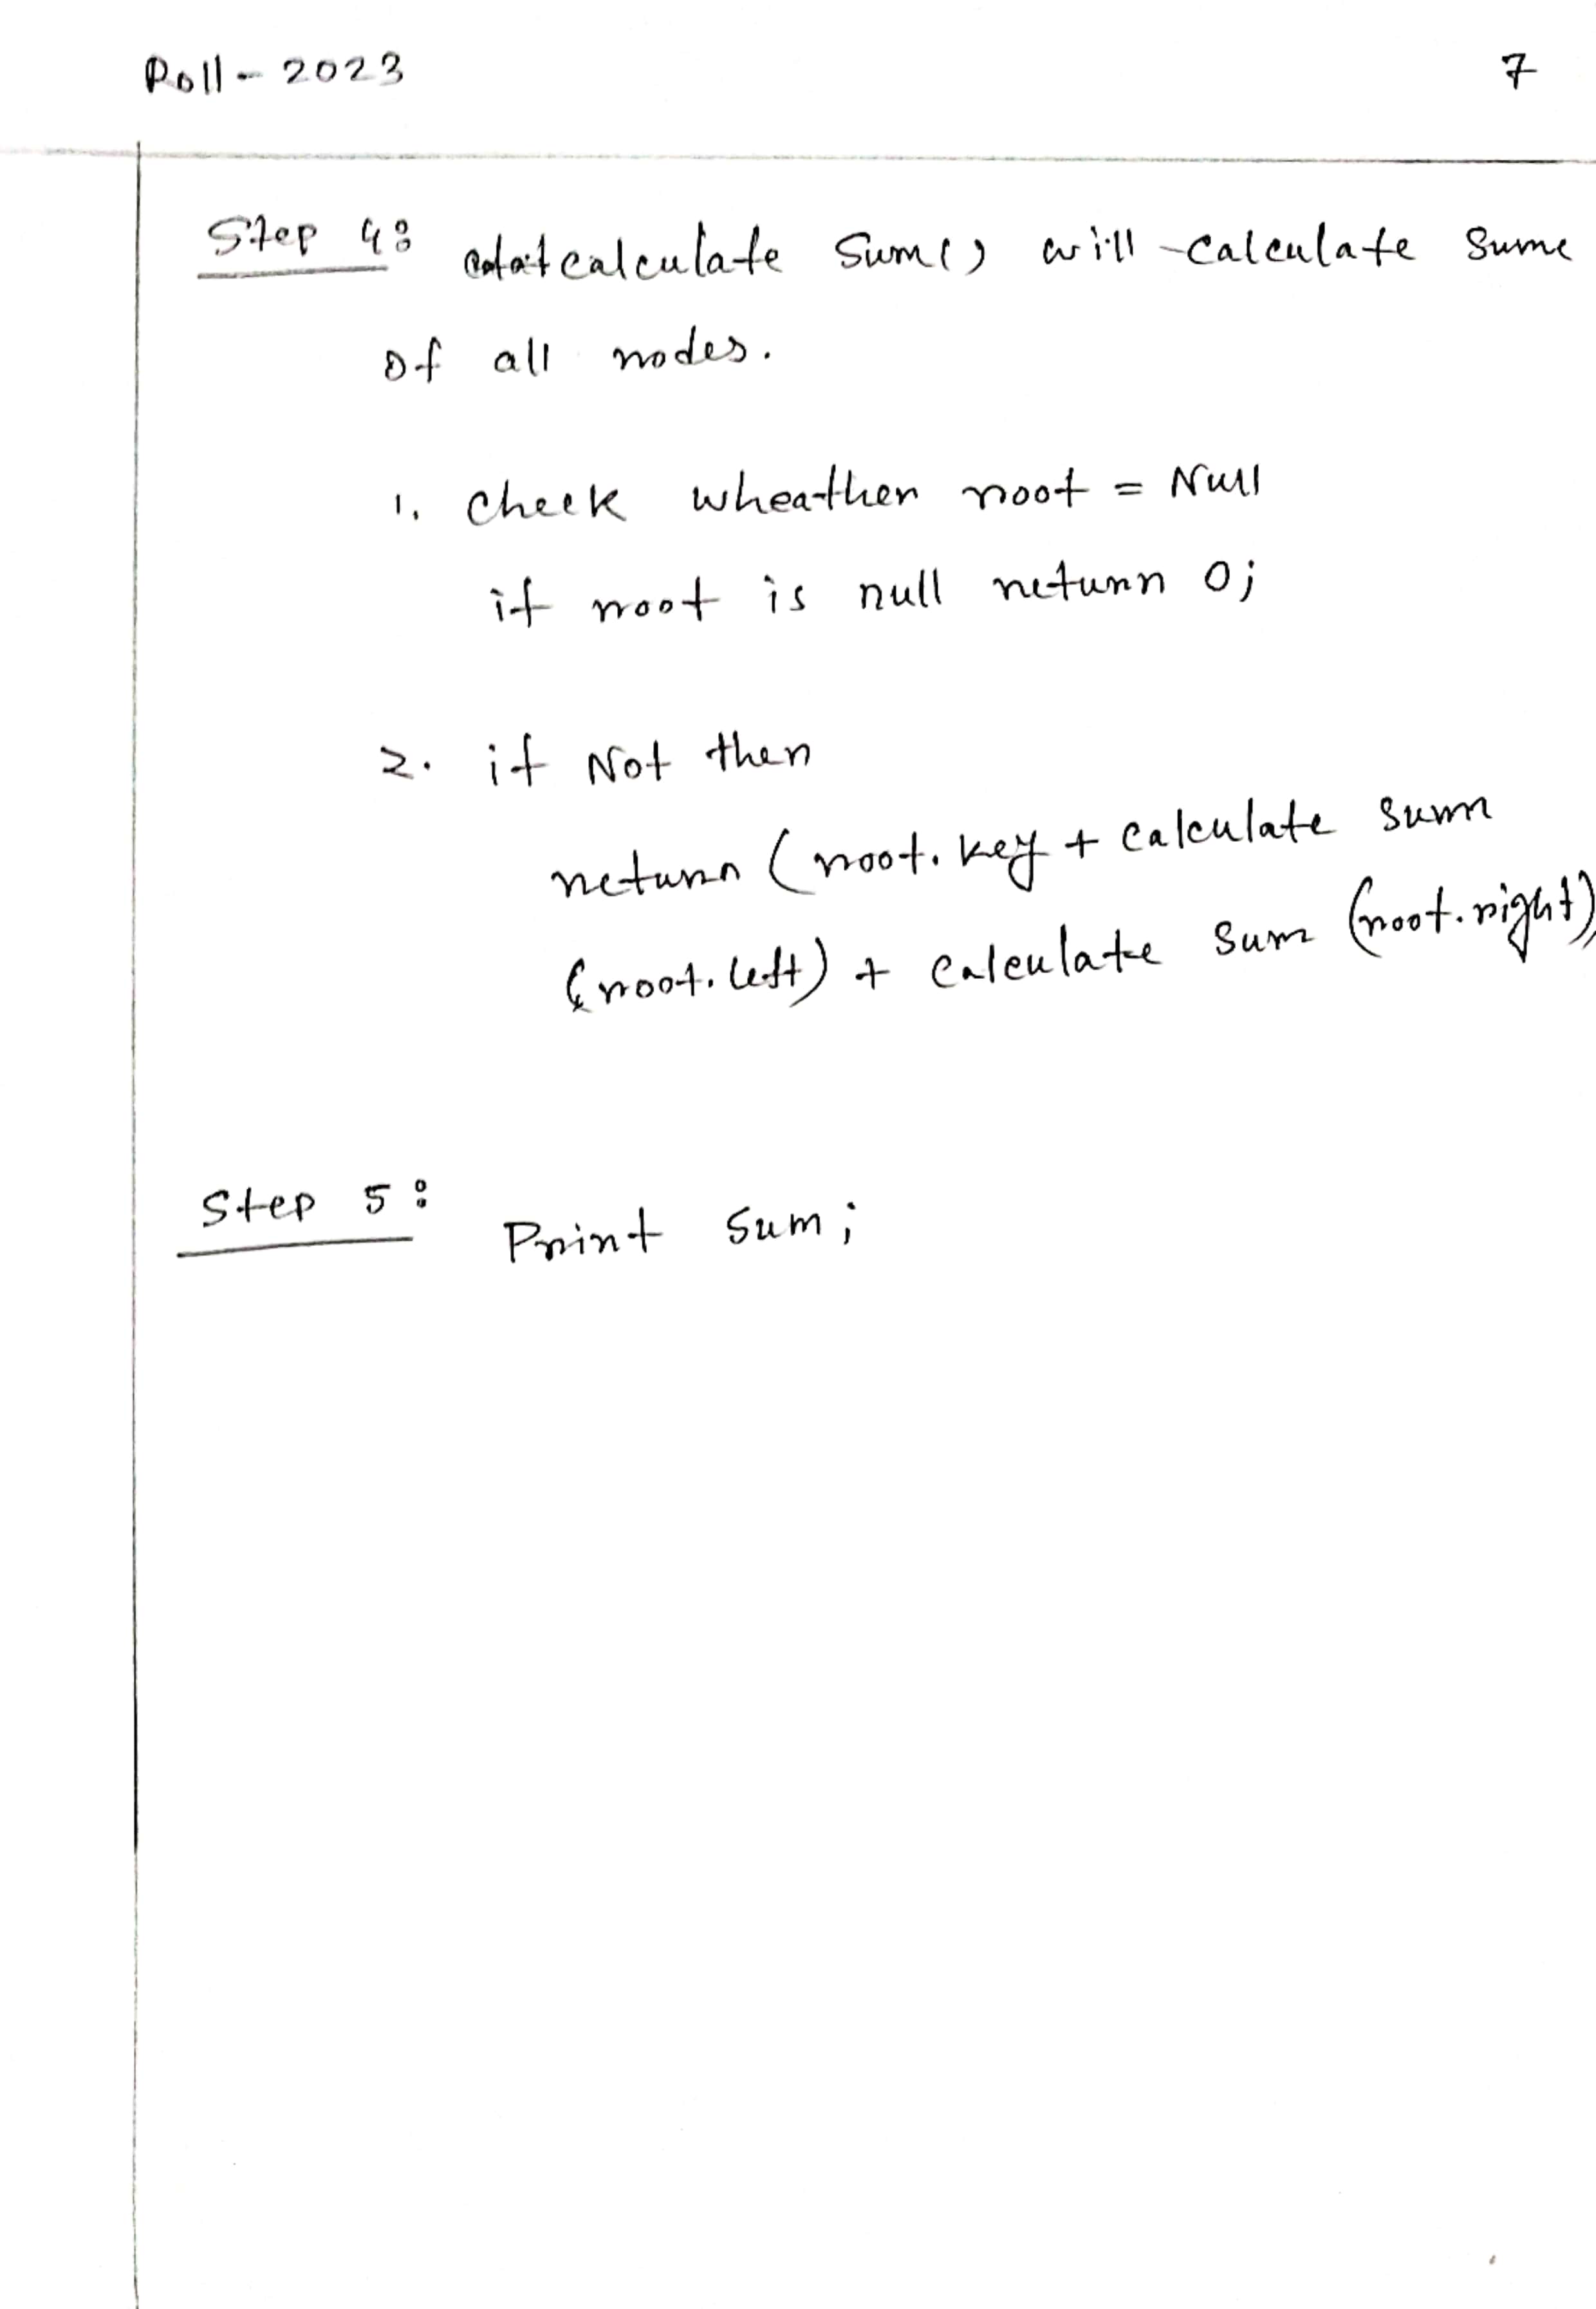 Roll - 2023
7
Step 4: calculate Sum() will calculate sum
of all nodes.
1. Check wheather root = Null
if root is null return 0;
2. if Not then
return (root.key + calculate sum
(root.left) + calculate sum (root.right)
Step 5: Print sum;